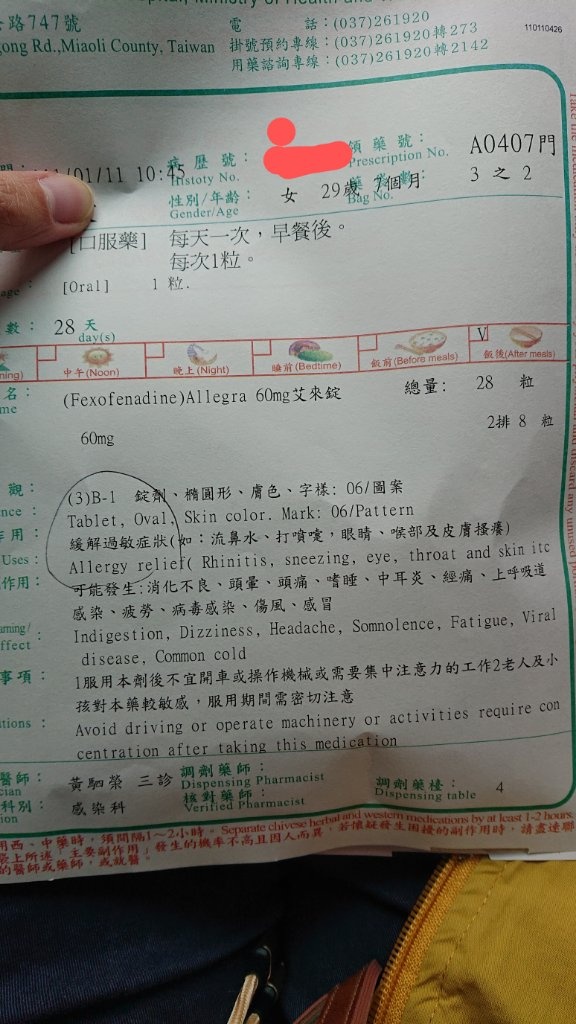 路747號
gong Rd.,Miaoli County, Taiwan
電 話：(037)261920
掛號預約專線：(037)261920轉273
用藥諮詢專線：(037)261920轉2142
110110426
/01/11 10:45
病歷號：
Histoty No.
領藥號：
Prescription No.
A0407門
性別/年齡：
Gender/Age
女 29歲 7個月
Bag No.
3 之 2
[口服藥] 每天一次，早餐後。
每次1粒。
[Oral] 1 粒.
數： 28 天
day(s)
ning)
中午(Noon)
晚上(Night)
睡前(Bedtime)
飯前(Before meals)
V
飯後(After meals)
名：
me
(Fexofenadine)Allegra 60mg艾來錠
總量: 28 粒
60mg
2排 8 粒
觀：
(3)B-1 錠劑、橢圓形、膚色、字樣: 06/圖案
nce :
Tablet, Oval, Skin color. Mark: 06/Pattern
作用：
緩解過敏症狀(如：流鼻水、打噴嚏，眼睛、喉部及皮膚搔癢)
Uses :
Allergy relief( Rhinitis, sneezing, eye, throat and skin itc
作用：
可能發生:消化不良、頭暈、頭痛、嗜睡、中耳炎、經痛、上呼吸道
感染、疲勞、病毒感染、傷風、感冒
arning/
ffect :
Indigestion, Dizziness, Headache, Somnolence, Fatigue, Viral
disease, Common cold
事項：
1服用本劑後不宜開車或操作機械或需要集中注意力的工作2老人及小
孩對本藥較敏感，服用期間需密切注意
tions :
Avoid driving or operate machinery or activities require con
centration after taking this medication
醫師：
cian
黃駟榮 三診
調劑藥師：
Dispensing Pharmacist
調劑藥檯：
Dispensing table
4
科別：
ion
感染科
核對藥師：
Verified Pharmacist
用西、中藥時，須間隔1~2小時。 Separate chivese herbal and western medications by at least 1-2 hours.
袋上所述「主要副作用」發生的機率不高且因人而異，若懷疑發生困擾的副作用時，請盡速聯
的醫師或藥師，或就醫。
discard any unused